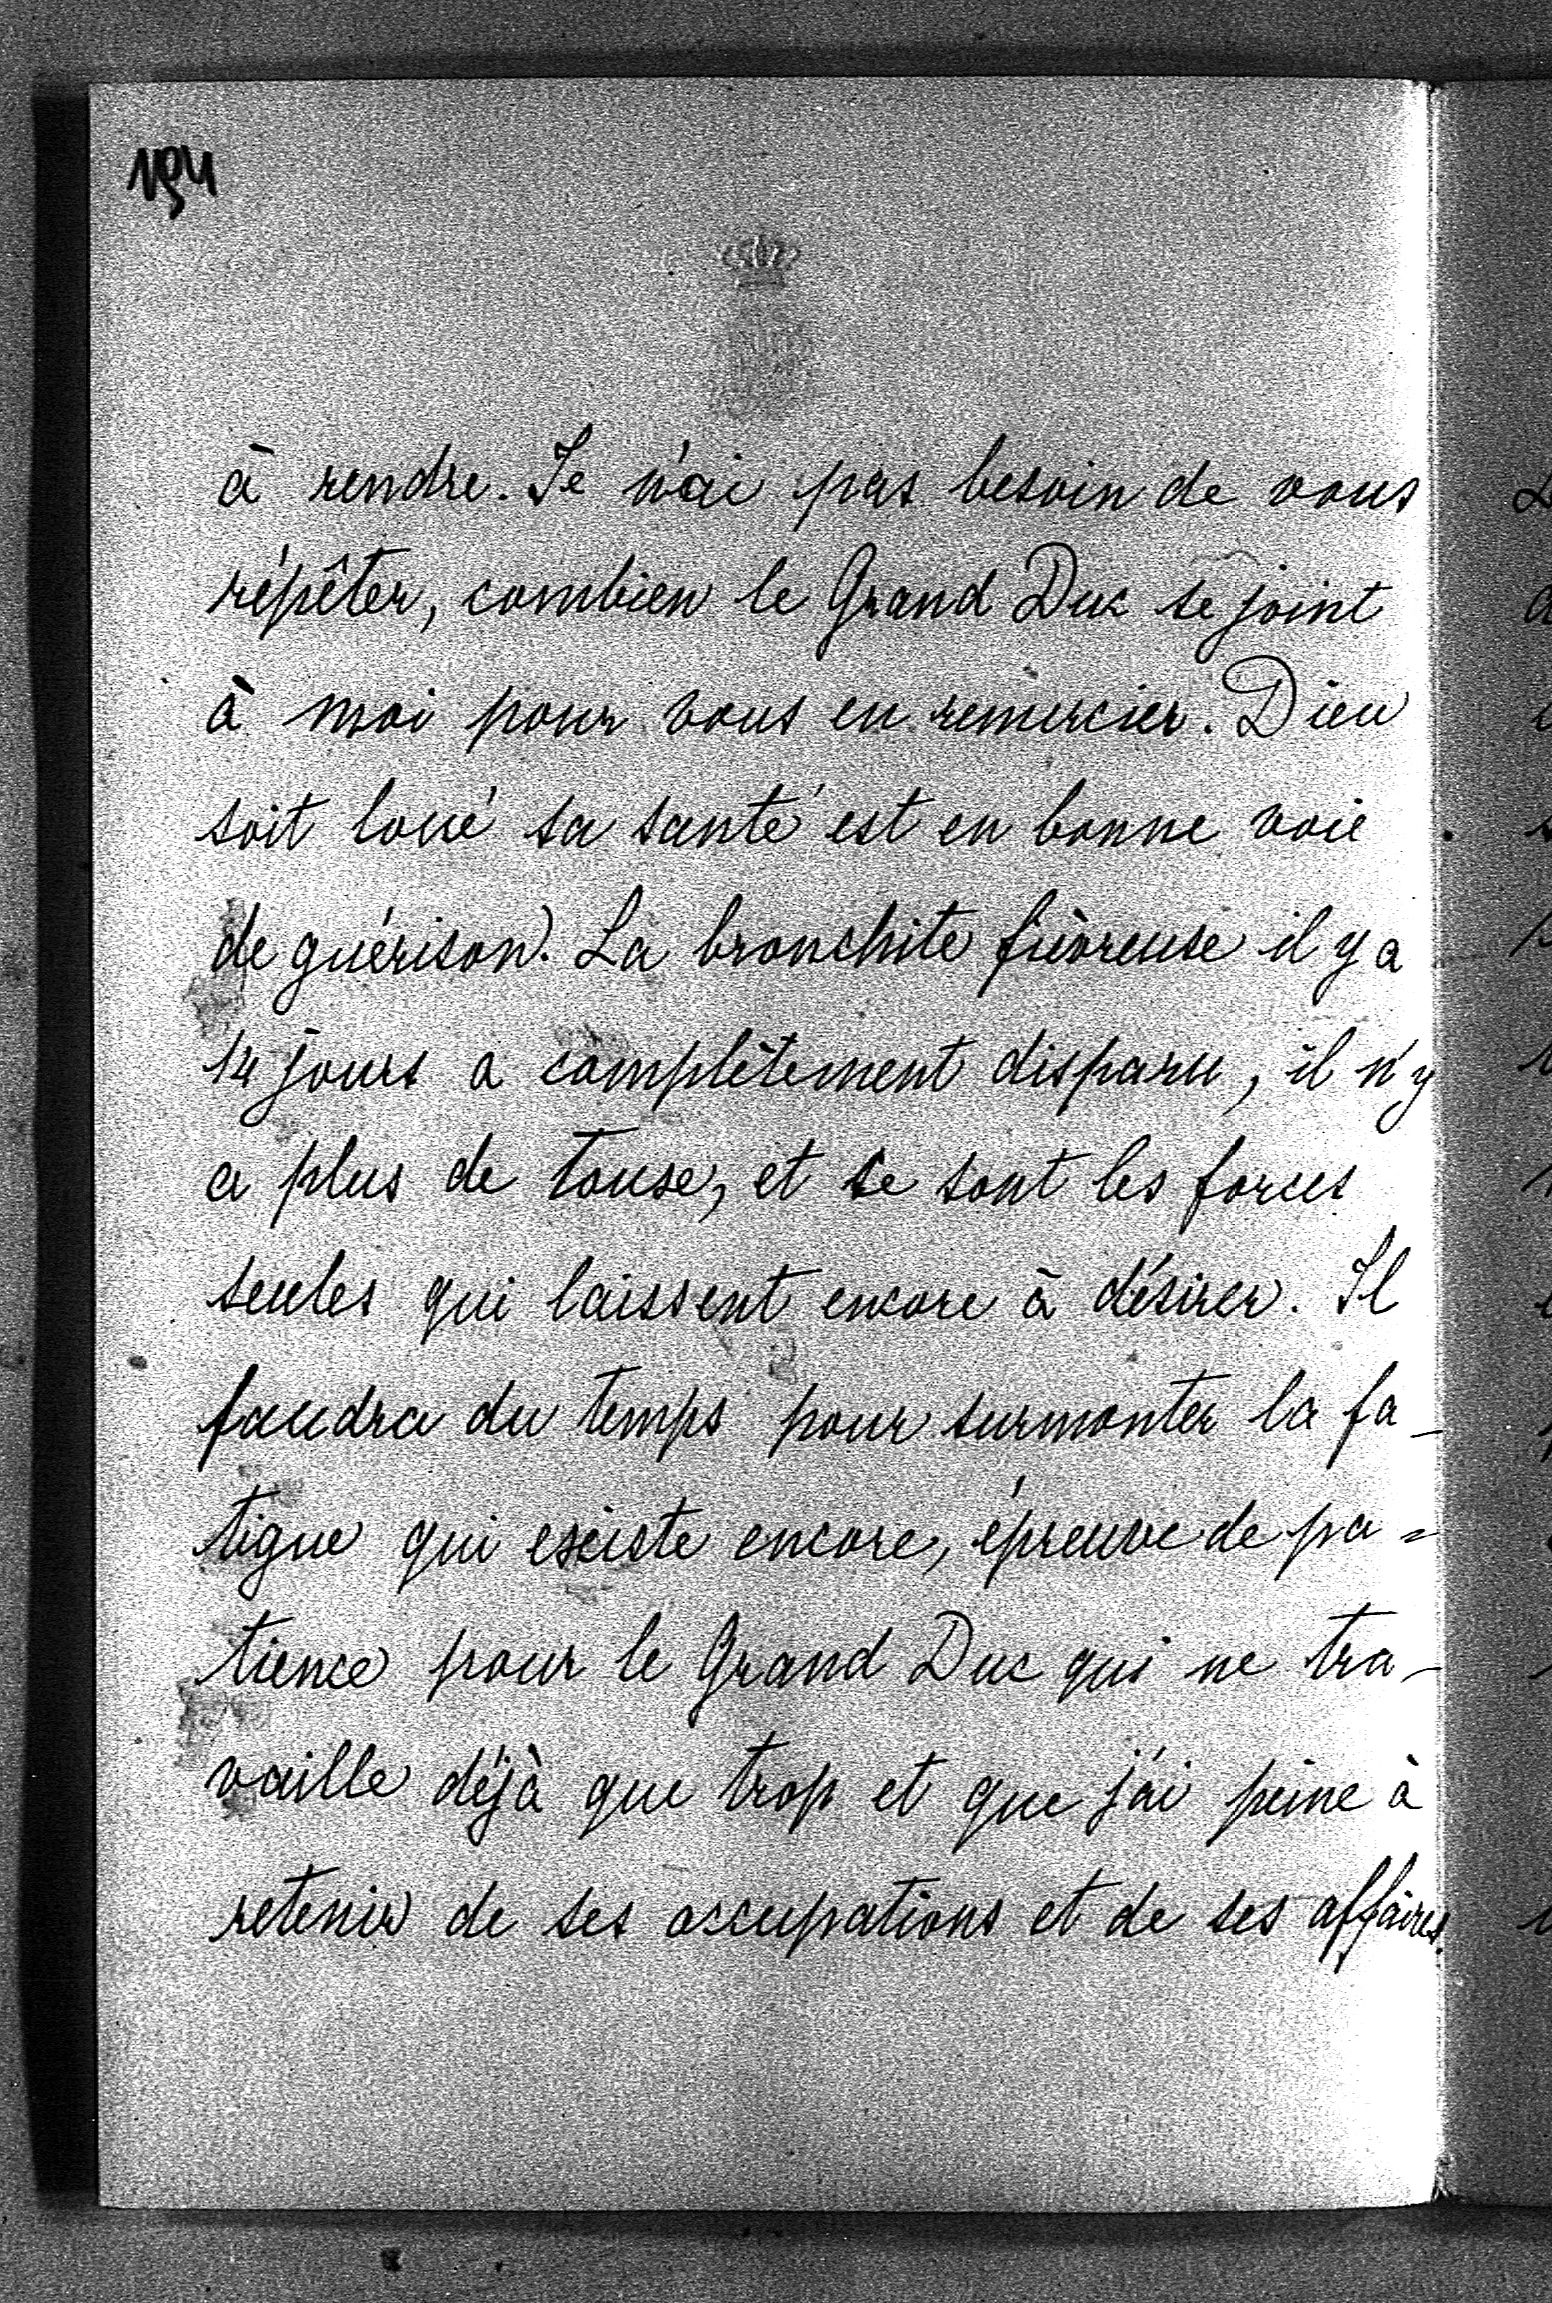 194
à rendre. Je n'ai pas besoin de vous
répêter, combien le Grand Duc se joint
à moi pour vous en remercier. Dieu
soit loué sa santé est en bonne voie
de guérison. La bronchite fièvreuse il y a
14 jours a complêtement disparu, il n'y
a plus de touse, et ce sont les forces
seules qui laissent encore à désirer. Il
faudra du temps pour surmonter la fa-
tigue qui existe encore, épreuve de pa=
tience pour le Grand Duc qui ne tra-
vaille déjà que trop et que j'ai peine à
retenir de ses occupations et de ses affaires.